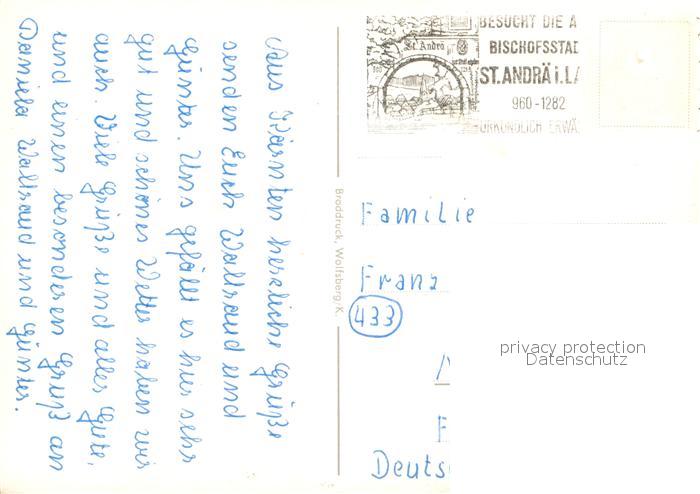 Aus Kärnten herzliche Grüße
senden Euch Waltraud und
Günter. Uns gefällt es hier sehr
gut und schönes Wetter haben wir
auch. Viele Grüße und alles Gute,
und einen besonderen Gruß an
Daniela Waltraud und Günter.
Broddruck, Wolfsberg/K.
BESUCHT DIE A
BISCHOFSSTAD
ST.ANDRÄ i.LA
960-1282
URKUNDLICH ERWÄ
St. Andrä
Familie
Franz
433
Deuts
privacy protection
Datenschutz